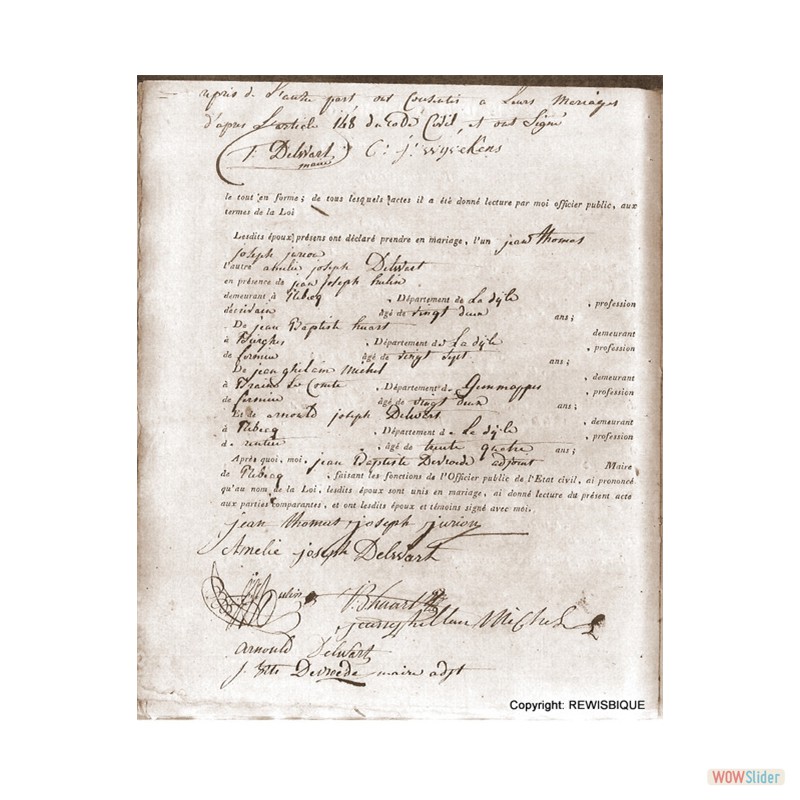 repris de L'autre part, ont Consentis a Leurs Mariages
d'apres L'article 148 du Code Civil, et ont Signé
J. Delwart C. J. wijckens
maire
le tout en forme; de tous lesquels actes il a été donné lecture par moi officier public, aux
termes de la Loi
Lesdits époux présens ont déclaré prendre en mariage, l'un jean thomas
joseph jurion
l'autre amelie joseph Delwart
en présence de jean joseph hulin
demeurant à Rebecq , Département de La dÿle , profession
d'écrivain âgé de vingt deux ans;
De jean Baptiste huart demeurant
à , Département de La dÿle , profession
de fermier âgé de vingt sept ans;
De jean ghilain michel , demeurant
à Braine Le Comte , Département de Gemmappes , profession
de fermier , âgé de vingt deux ans;
Et de arnould joseph Delwart , demeurant
à Rebecq , Département de La dÿle , profession
de rentier , âgé de trente quatre ans;
Après quoi, moi, jean Baptiste Devroede adjoint Maire
de Rebecq , faisant les fonctions de l'Officier public de l'Etat civil, ai prononcé
qu'au nom de la Loi, lesdits époux sont unis en mariage, ai donné lecture du présent acte
aux parties comparantes, et ont lesdits époux et témoins signé avec moi.
jean thomas joseph jurion
Amelie joseph Delwart
hulin
huart
jean ghillain Michel
arnould Delwart
j. Bte Devroede maire adjt
Copyright: REWISBIQUE
WOWSlider